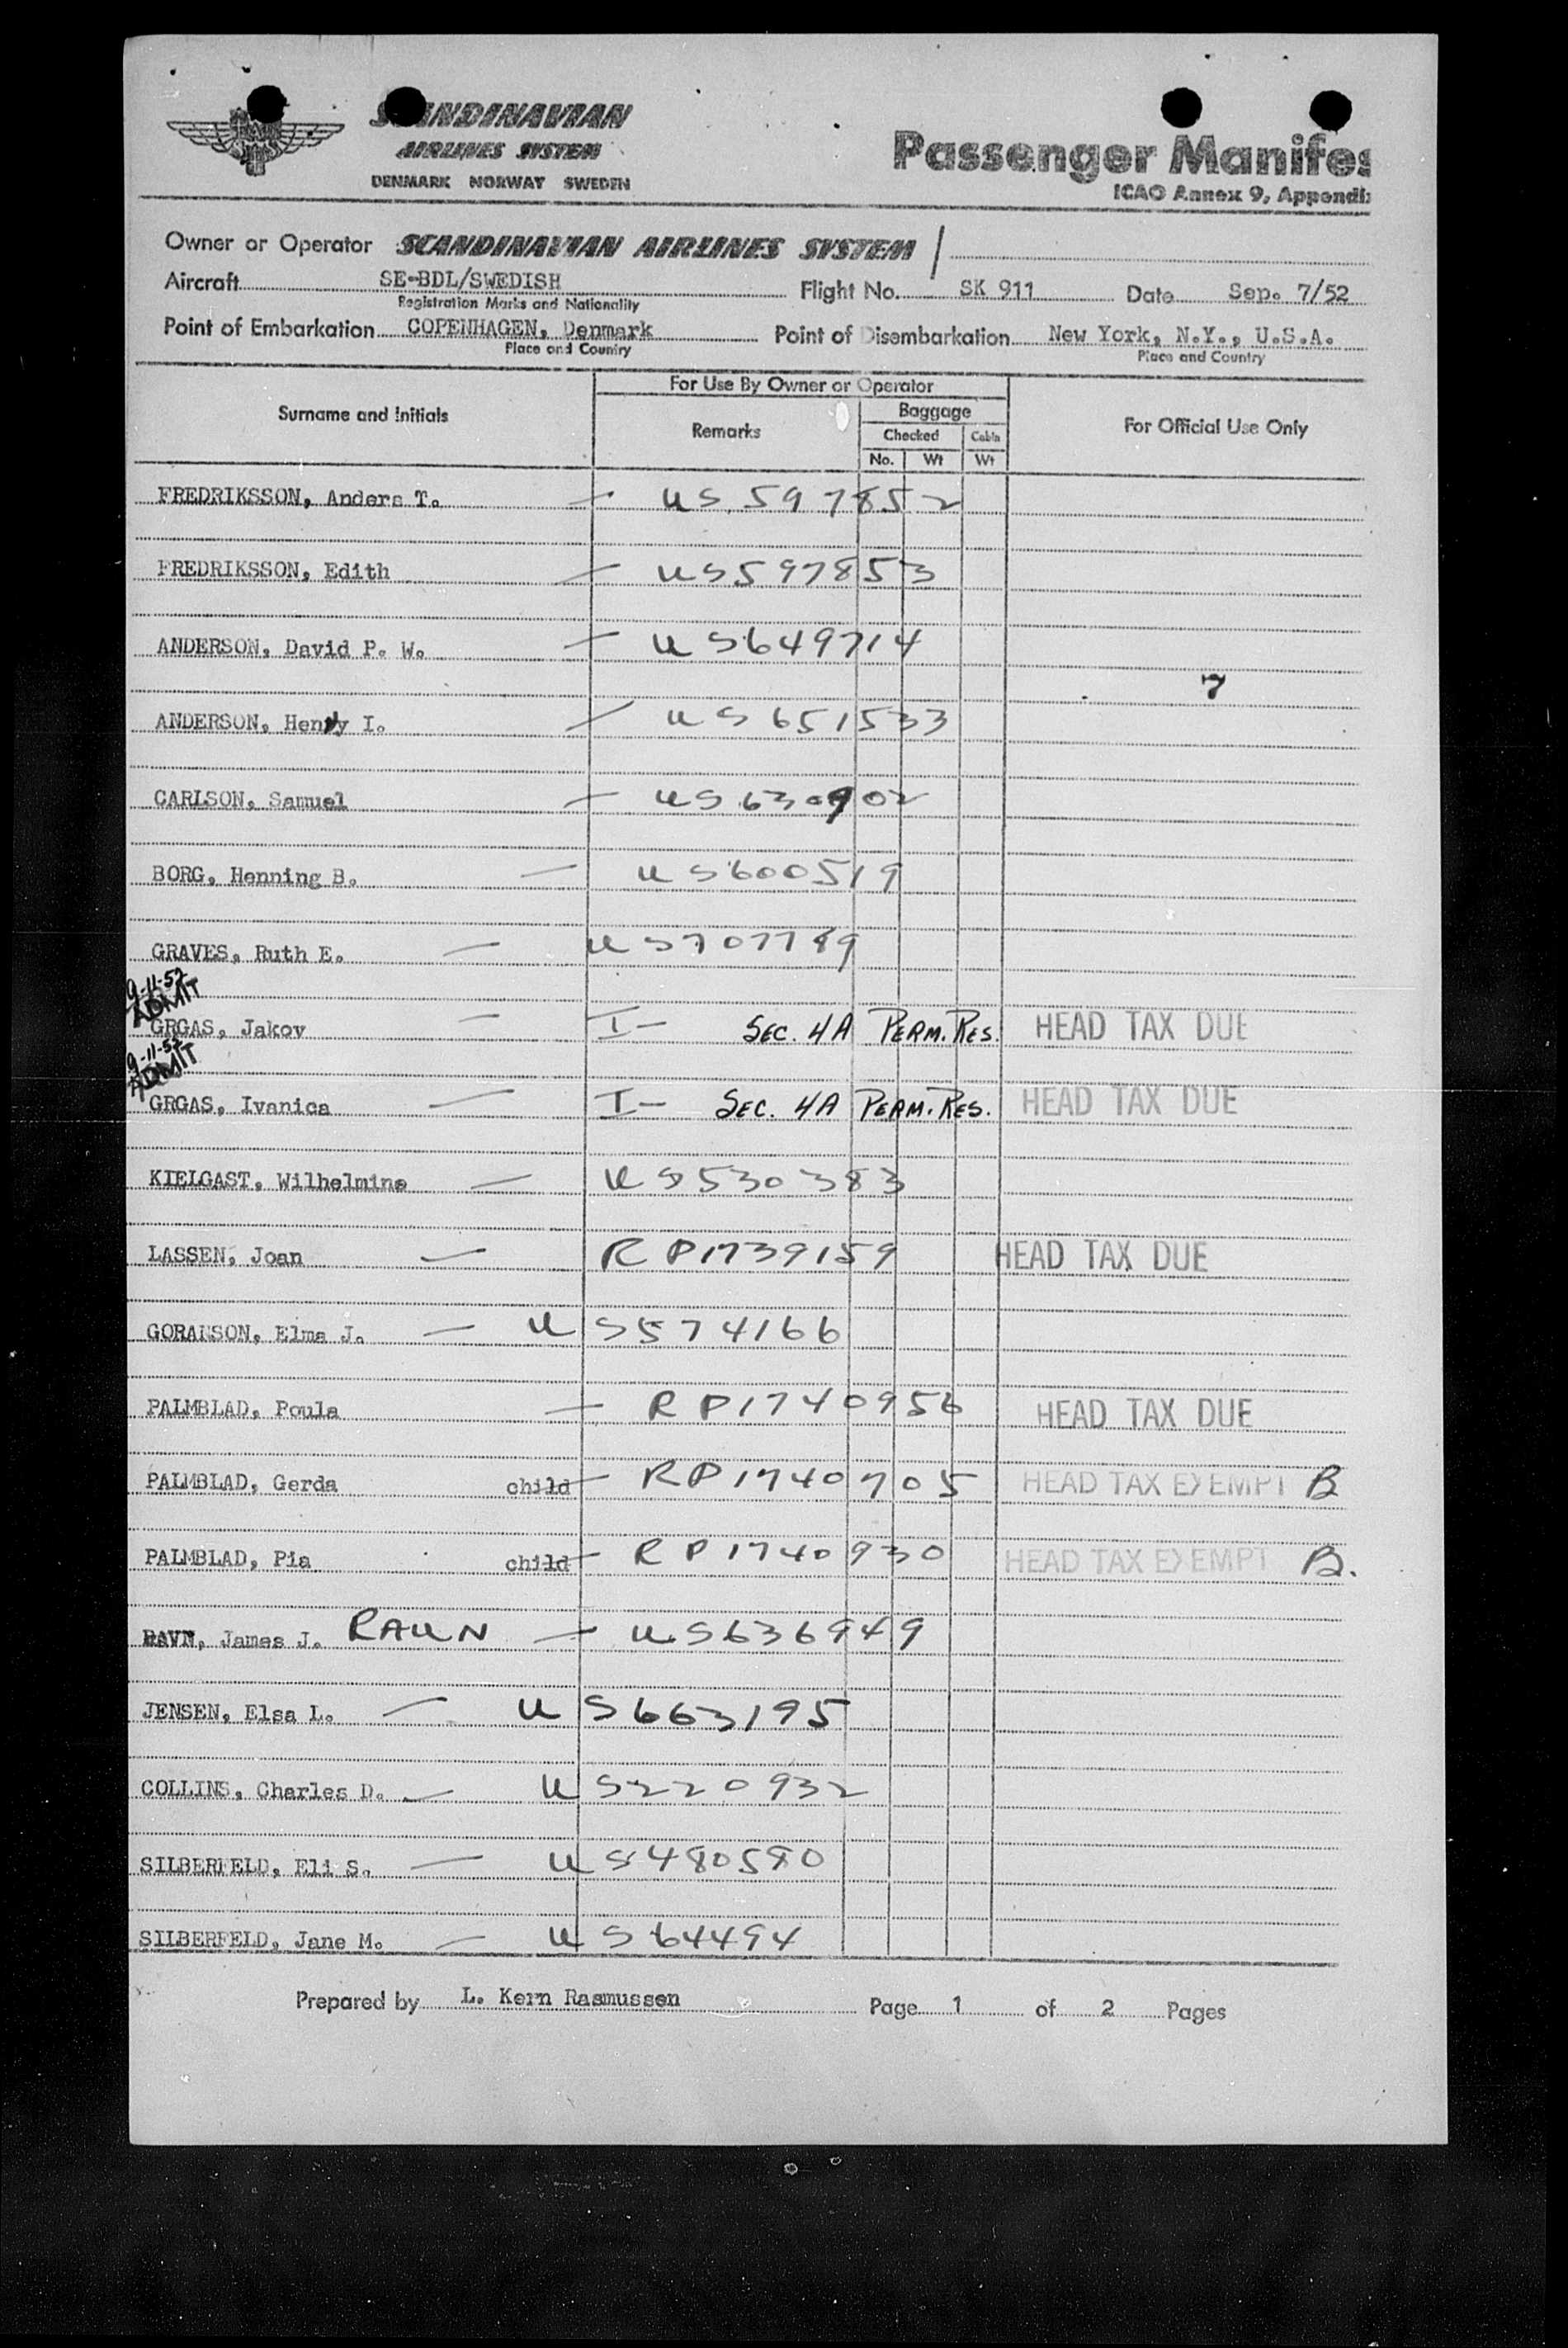 SCANDINAVIAN
AIRLINES SYSTEM
DENMARK NORWAY SWEDEN
Passenger Manifes
ICAO Annex 9, Appendi
Owner or Operator SCANDINAVIAN AIRLINES SYSTEM /
Aircraft SE-BDL/SWEDISH Flight No. SK 911 Date Sep. 7/52
Registration Marks and Nationality
Point of Embarkation COPENHAGEN, Denmark Point of Disembarkation New York, N.Y., U.S.A.
Place and Country Place and Country
For Use By Owner or Operator
Surname and Initials Remarks Baggage For Official Use Only
Checked Cabin
No. Wt Wt
FREDRIKSSON, Anders T. — US 597852
FREDRIKSSON, Edith — US597853
ANDERSON, David P. W. — US649714
7
ANDERSON, Henry I. — US651533
CARLSON, Samuel — US630902
BORG, Henning B. — US600519
GRAVES, Ruth E. — US707789
9-11-52
ADMIT
GRGAS, Jakov — I- SEC. 4A PERM. RES. HEAD TAX DUE
9-11-52
ADMIT
GRGAS, Ivanica — I- SEC. 4A PERM. RES. HEAD TAX DUE
KIELGAST, Wilhelmine — US530383
LASSEN, Joan — RP1739159 HEAD TAX DUE
GORANSON, Elma J. — US574166
PALMBLAD, Poula — RP1740956 HEAD TAX DUE
PALMBLAD, Gerda child — RP1740705 HEAD TAX EXEMPT B
PALMBLAD, Pia child — RP1740930 HEAD TAX EXEMPT B.
RAVN, James J. RAUN — US636949
JENSEN, Elsa L. — US663195
COLLINS, Charles D. — US220932
SILBERFELD, Eli S. — US480580
SILBERFELD, Jane M. — US64494
Prepared by L. Kern Rasmussen Page 1 of 2 Pages